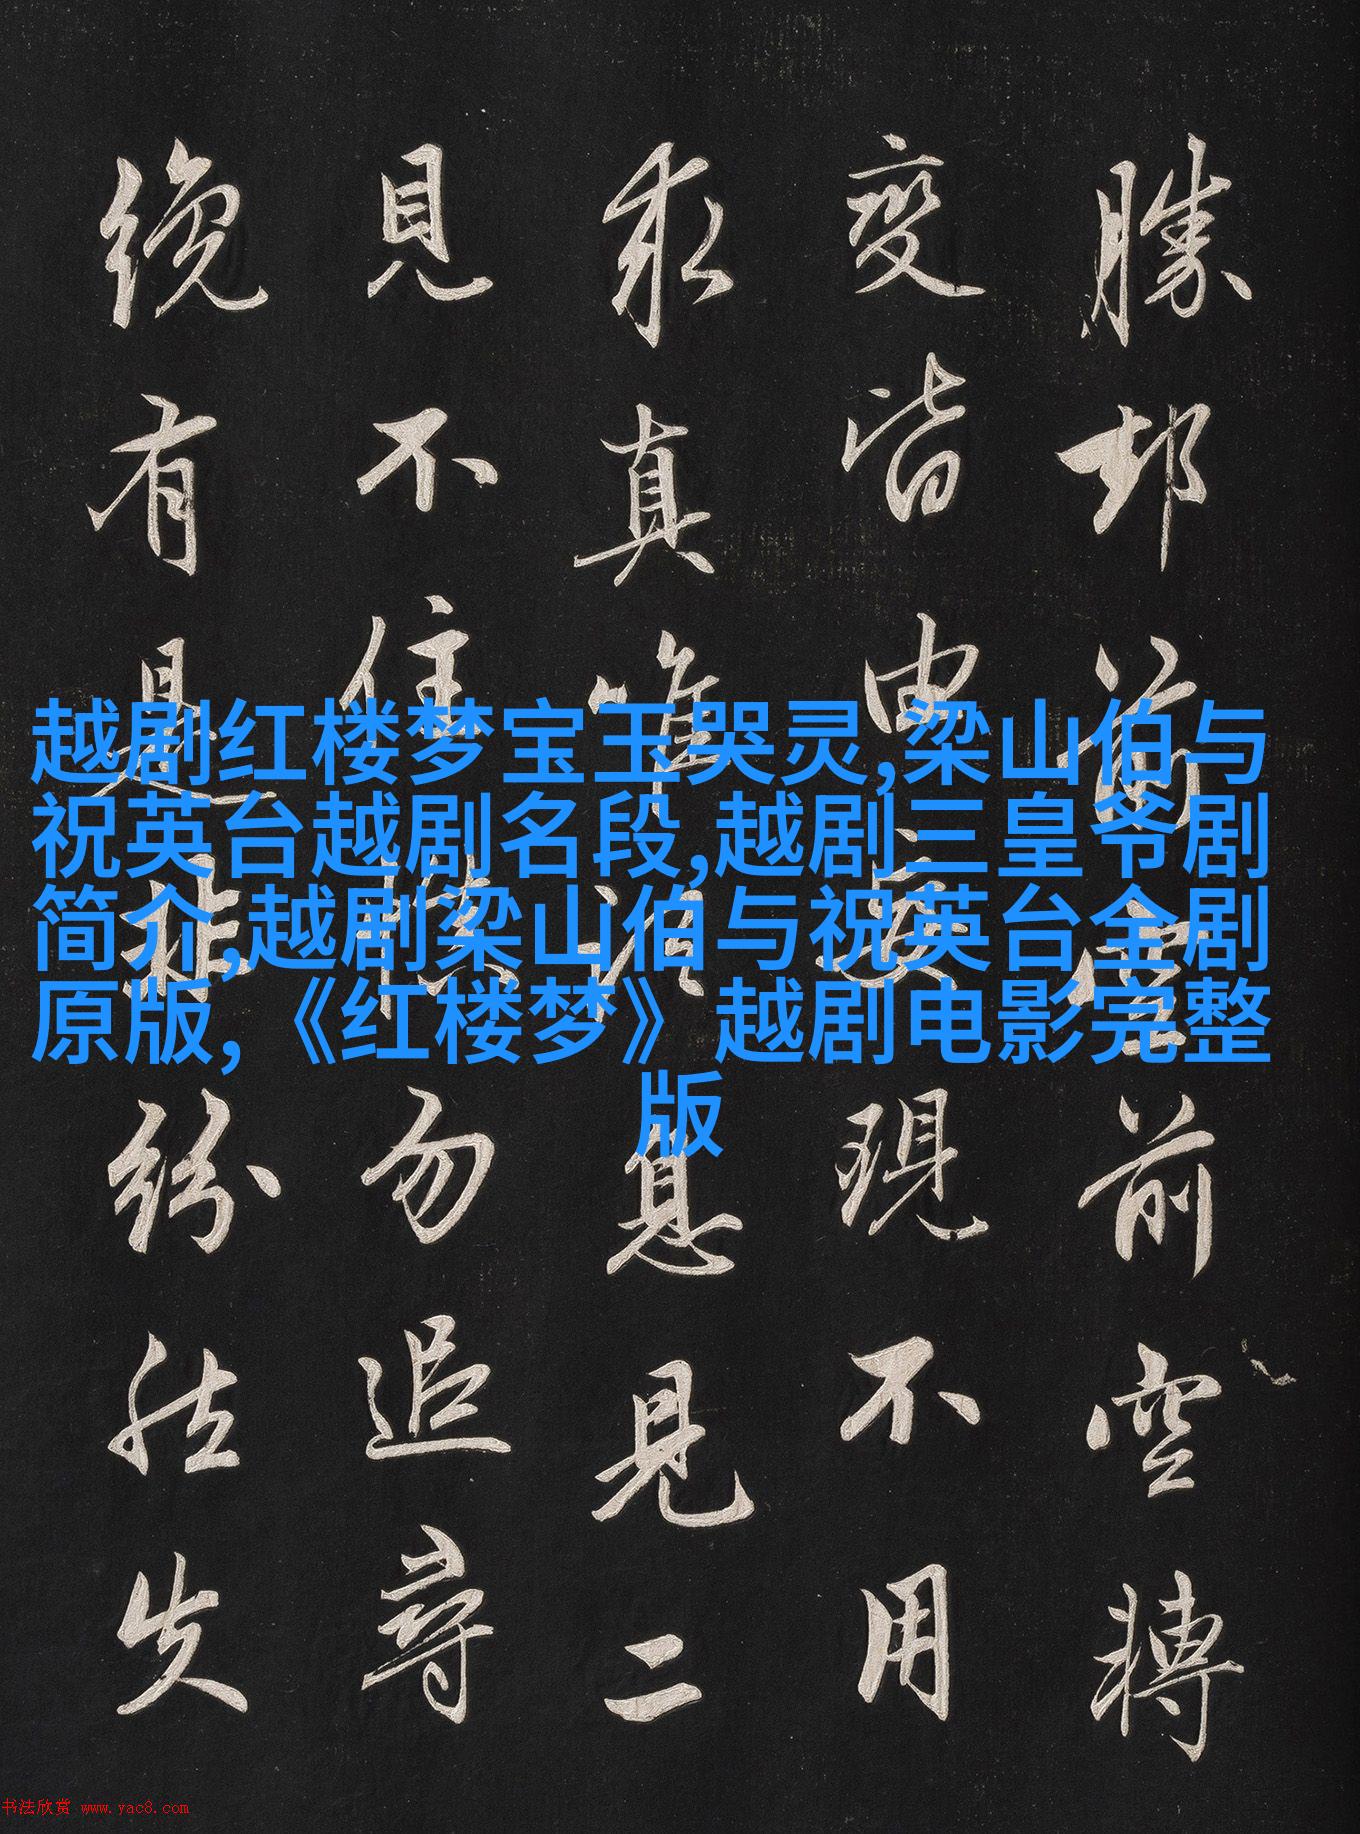 越剧红楼梦宝玉哭灵,梁山伯与
祝英台越剧名段,越剧三皇爷剧
简介,越剧梁山伯与祝英台全剧
原版,《红楼梦》越剧电影完整
版
勝却前空前空轉
變皆由妄現不用
求真唯須息見二
見不住慎勿追尋
纔有是非紛然失
书法欣赏 www.yac8.com